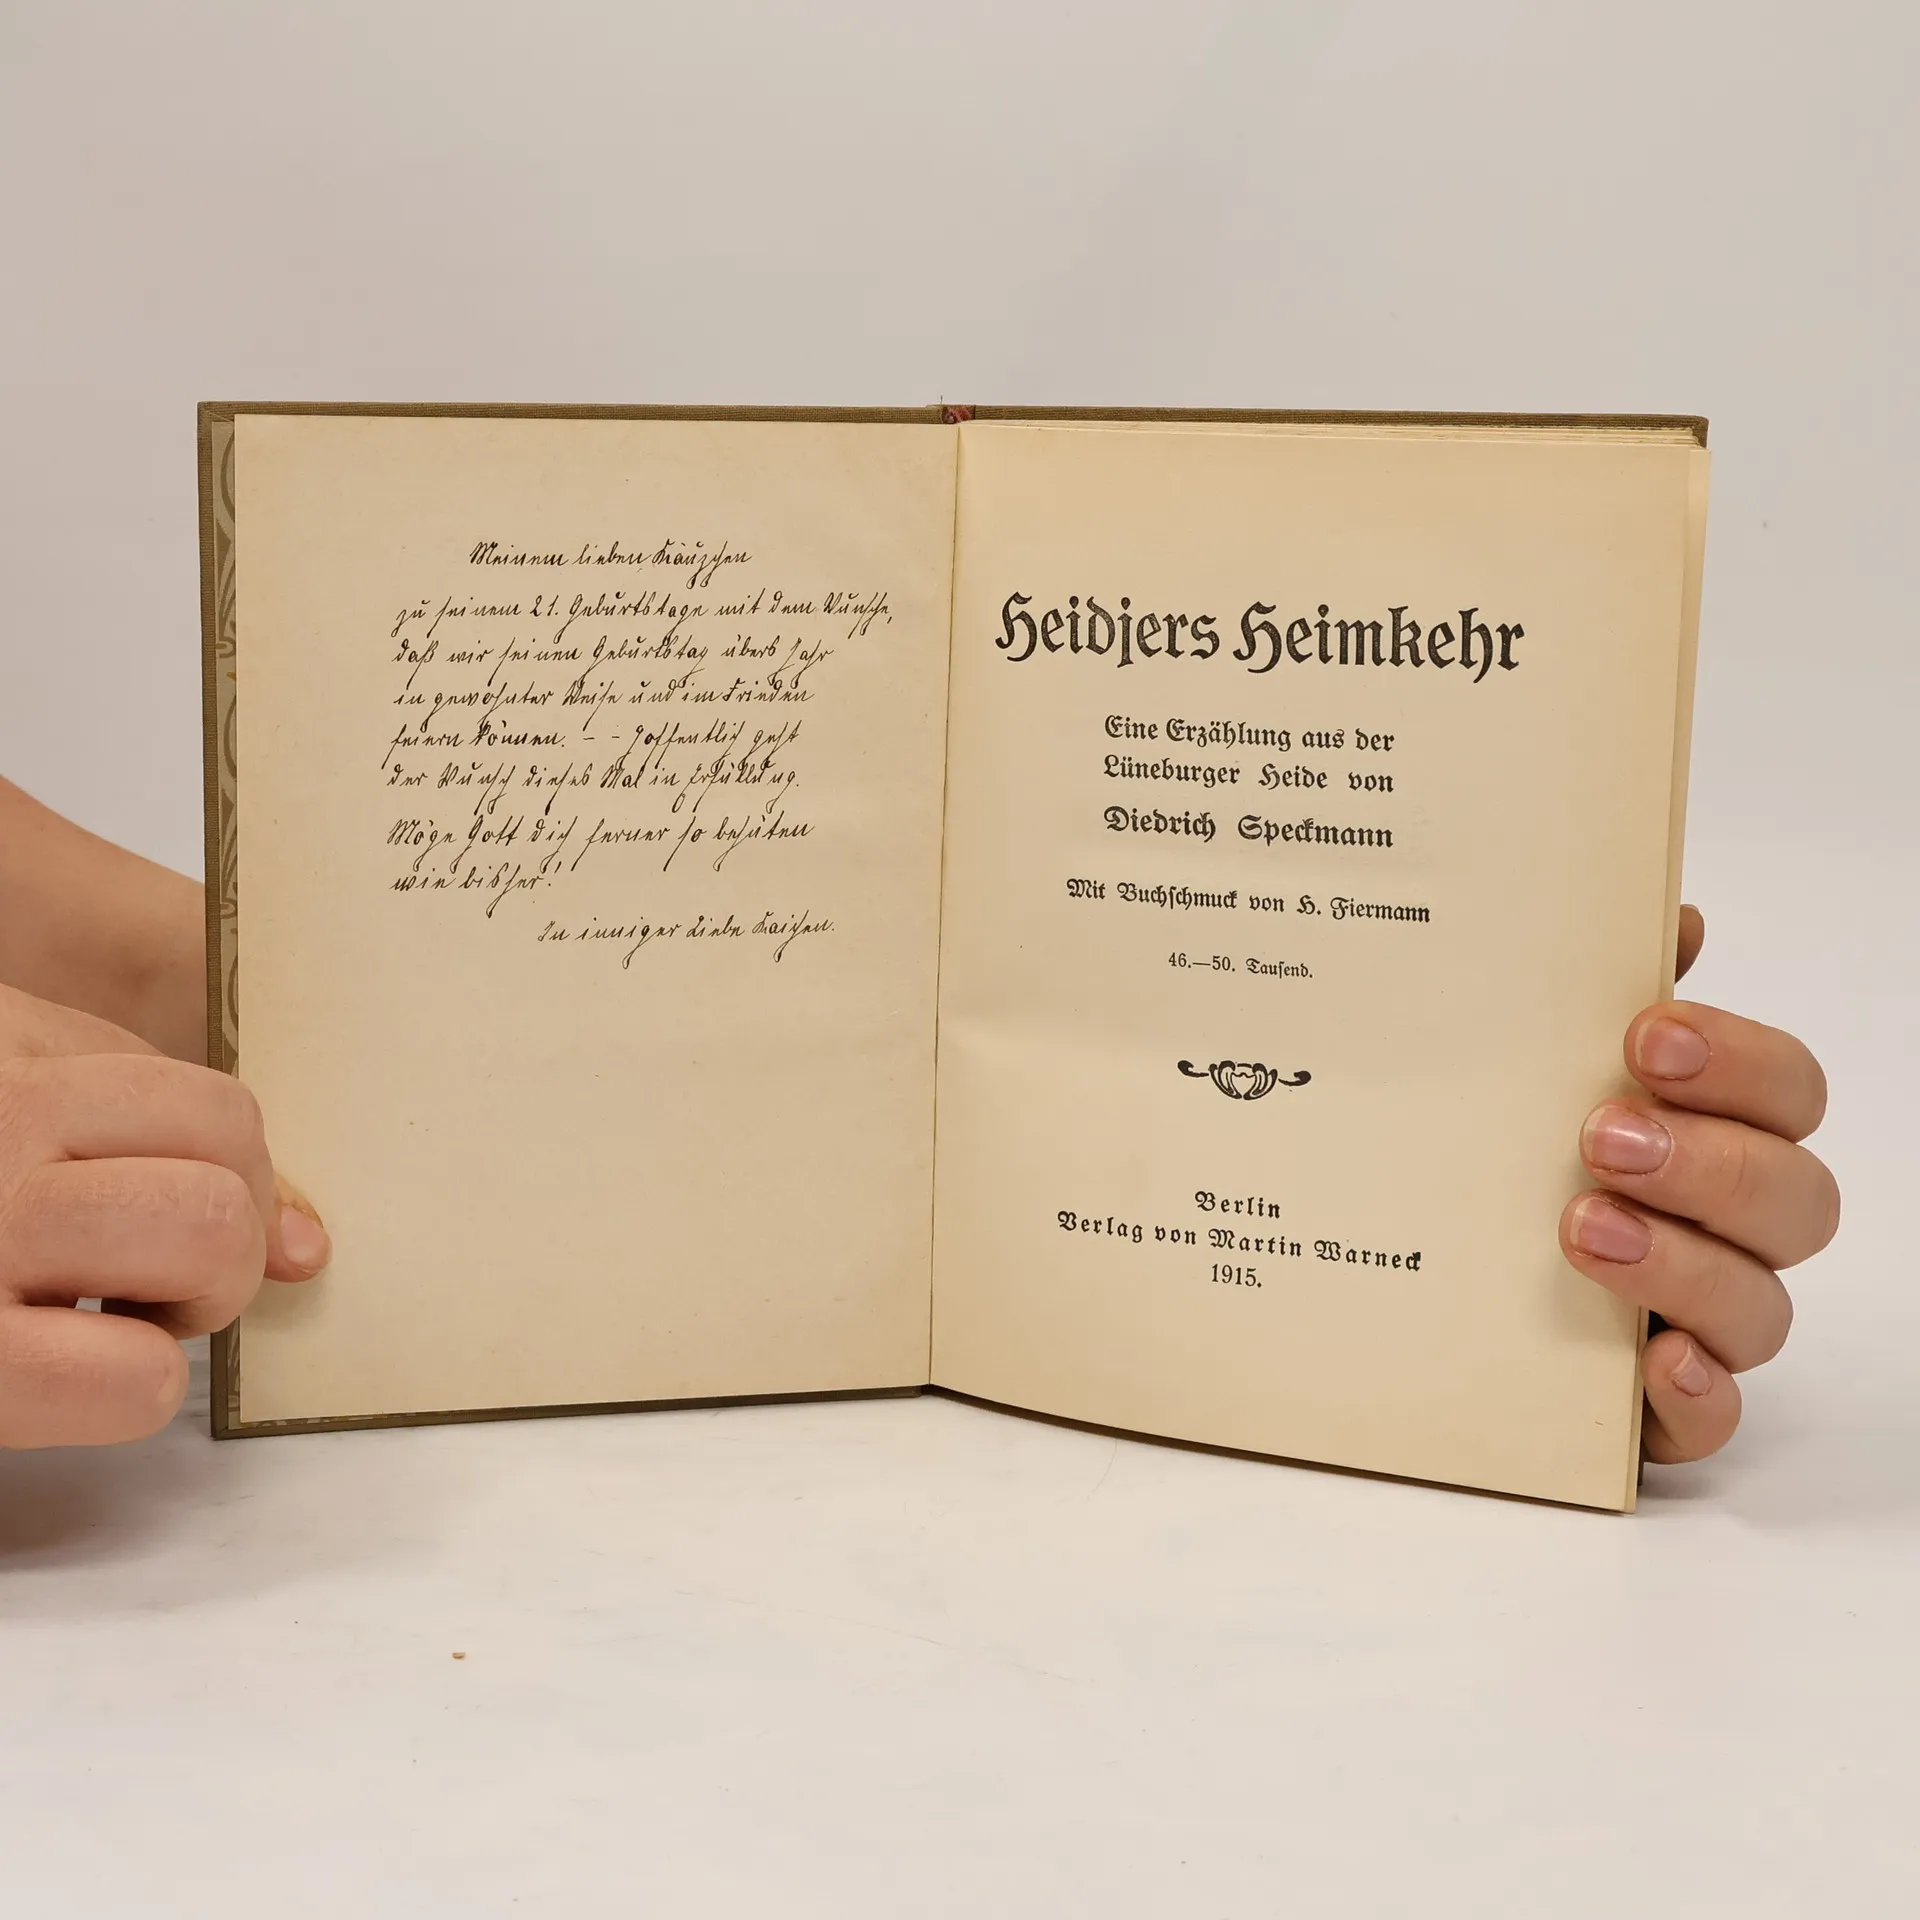 Meinem lieben Käuzchen
zu seinem 21. Geburtstage mit dem Wunsche,
daß wir seinen Geburtstag übers Jahr
in gewohnter Weise und im Frieden
feiern können. – – Hoffentlich geht
der Wunsch dieses Mal in Erfüllung.
Möge Gott dich ferner so behüten
wie bisher!
In inniger Liebe
Heidjers Heimkehr
Eine Erzählung aus der
Lüneburger Heide von
Diedrich Speckmann
Mit Buchschmuck von H. Fiermann
46.—50. Tausend.
Berlin
Verlag von Martin Warneck
1915.